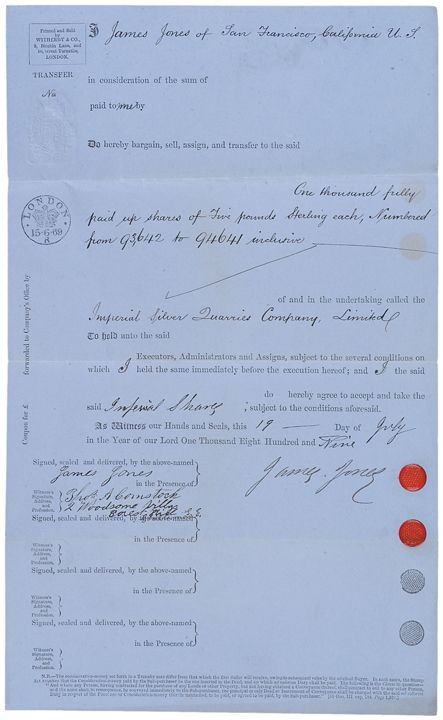 Printed and Sold
by
WITHERBY & CO.,
LONDON.
TRANSFER
No
I James Jones of San Francisco, California U. S.
in consideration of the sum of
paid to me by
Do hereby bargain, sell, assign, and transfer to the said
One thousand fully
paid up shares of Five pounds Sterling each, Numbered
from 93,642 to 94641 inclusive
LONDON
15-6-69
of and in the undertaking called the
Imperial Silver Quarries Company, Limited
To hold unto the said
Executors, Administrators and Assigns, subject to the several conditions on
which I held the same immediately before the execution hereof; and I the said
do hereby agree to accept and take the
said Imperial Shares, subject to the conditions aforesaid.
As Witness our Hands and Seals, this 19 — Day of July
in the Year of our Lord One Thousand Eight Hundred and Nine
forwarded to Company's Office by
Coupon for £
Signed, sealed and delivered, by the above-named
James Jones
in the Presence of
James Jones
Witness's
Signature,
Address,
and
Profession.
Thos. A Comstock
2 Woodsome Villas
Forest Hill S.E.
Signed, sealed and delivered, by the above-named
in the Presence of
Witness's
Signature,
Address,
and
Profession.
Signed, sealed and delivered, by the above-named
in the Presence of
Witness's
Signature,
Address,
and
Profession.
Signed, sealed and delivered, by the above-named
in the Presence of
Witness's
Signature,
Address,
and
Profession.